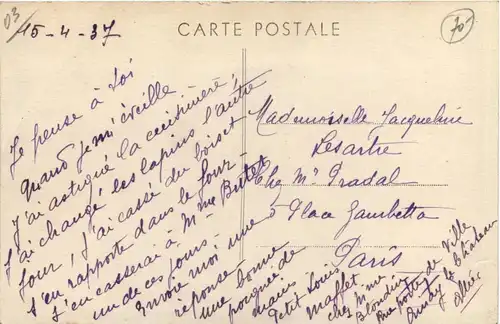 03
15-4-37
CARTE POSTALE
70-
Je pense à toi
quand je m'éveille
J'ai astiqué la cuisinière,
J'ai changé les lapins l'autre
jour, J'ai cassé du bois et
s'en rapporte dans le four -
J'en casserai à Mme
un de ces jours -
Envoie moi une
réponse
une bonne
poignée de
mains
Petit Louis
Maffet
chez Mme
Blondin
Rue porte de Ville
Ainay le Château
Allier
Mademoiselle Jacqueline
Lesartre
Chez Mr Pradal
5 Place Gambetta
Paris